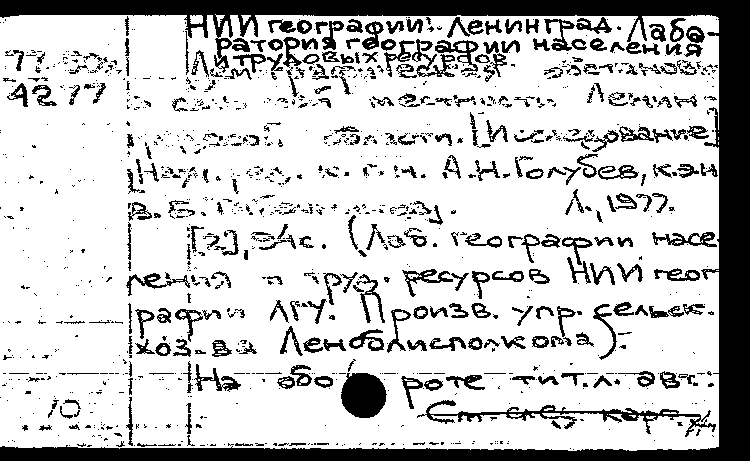 НИИ географии. Ленинград. Лабо-
ратория географии населения
и трудовых ресурсов.
77-60
4277
Демографическая обстановка
в сельской местности Ленин-
градской области. [Исследование]
[Науч. ред. к. г. н. А.Н. Голубев, к.э.н
В. Б.
Л., 1977.
[2], 94 с. (Лаб. географии насе
ления и труд. ресурсов НИИ геог
рафии ЛГУ. Произв. упр. сельск.
хоз-ва Леноблисполкома).
На обороте тит. л. авт.:
См. след. карт.
10